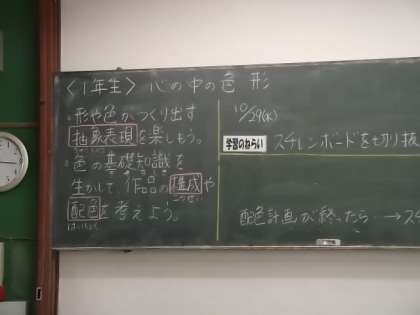 <1年生> 心の中の色 形
・形や色がつくり出す
抽象表現を楽しもう。
・色の基礎知識を
生かして、作品の構成や
こうせい
配色を考えよう。
はいしょく
10/29(火)
学習のねらい スチレンボードを切り抜
配色計画が終ったら →ス